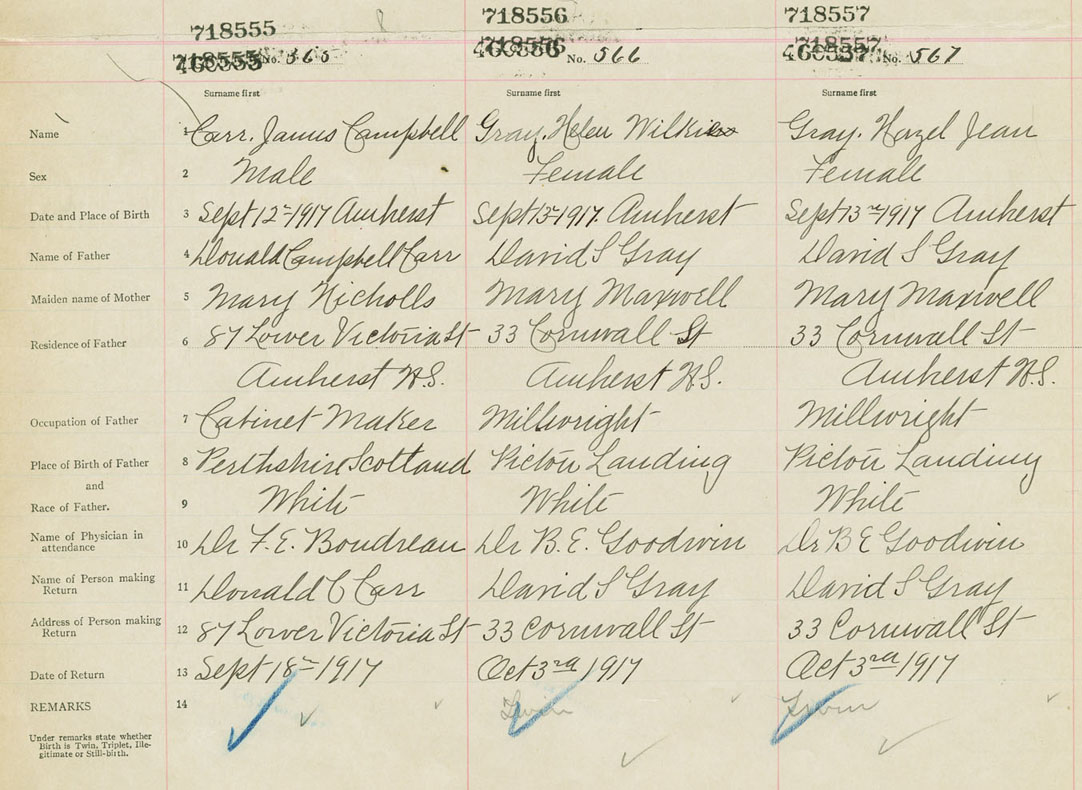 718555 718556 718557
718555 718556 718557
460555 No. 565 460556 No. 566 460557 No. 567
Surname first Surname first Surname first
Name 1 Carr. James Campbell Gray. Helen Wilkie Gray. Hazel Jean
Sex 2 Male Female Female
Date and Place of Birth 3 Sept 12th 1917 Amherst Sept 13th 1917 Amherst Sept 13th 1917 Amherst
Name of Father 4 Donald Campbell Carr David S Gray David S Gray
Maiden name of Mother 5 Mary Nicholls Mary Maxwell Mary Maxwell
Residence of Father 6 87 Lower Victoria St 33 Cornwall St 33 Cornwall St
Amherst N.S. Amherst N.S. Amherst N.S.
Occupation of Father 7 Cabinet Maker Millwright Millwright
Place of Birth of Father 8 Perthshire Scotland Pictou Landing Pictou Landing
and
Race of Father. 9 White White White
Name of Physician in
attendance 10 Dr F. E. Boudreau Dr B. E. Goodwin Dr B E Goodwin
Name of Person making
Return 11 Donald C Carr David S Gray David S Gray
Address of Person making
Return 12 87 Lower Victoria St 33 Cornwall St 33 Cornwall St
Date of Return 13 Sept 18th 1917 Oct 3rd 1917 Oct 3rd 1917
REMARKS 14 Twin Twin
Under remarks state whether
Birth is Twin, Triplet, Ille-
gitimate or Still-birth.